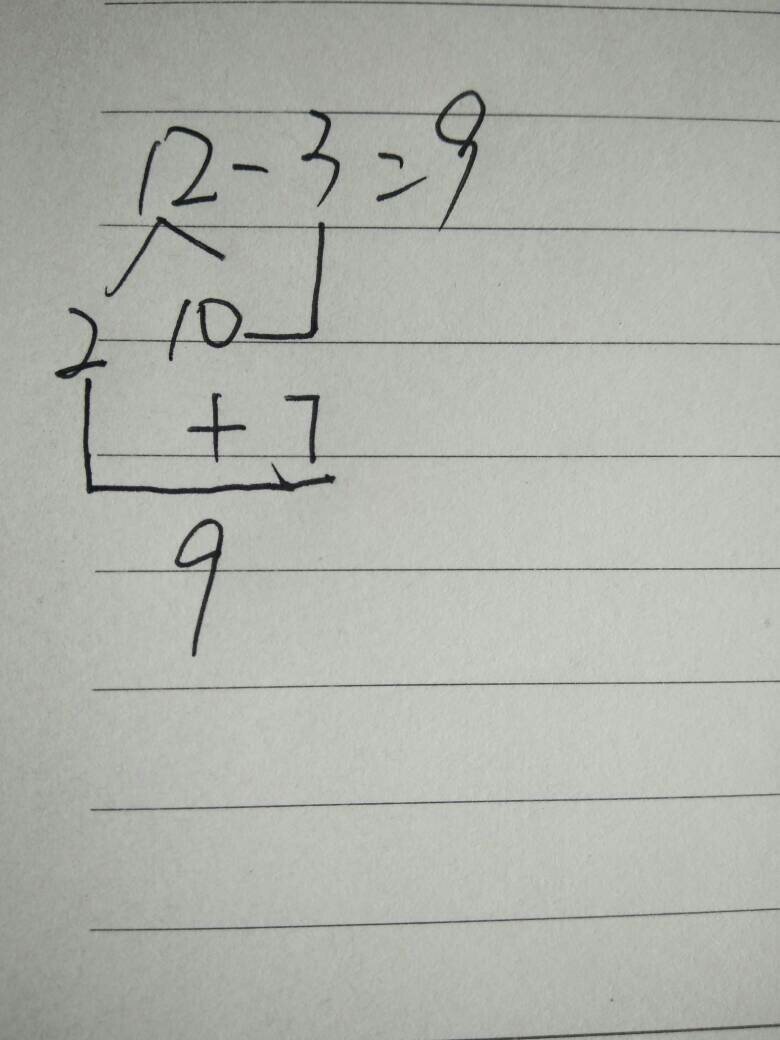 12-3=9
2 10
+7
9